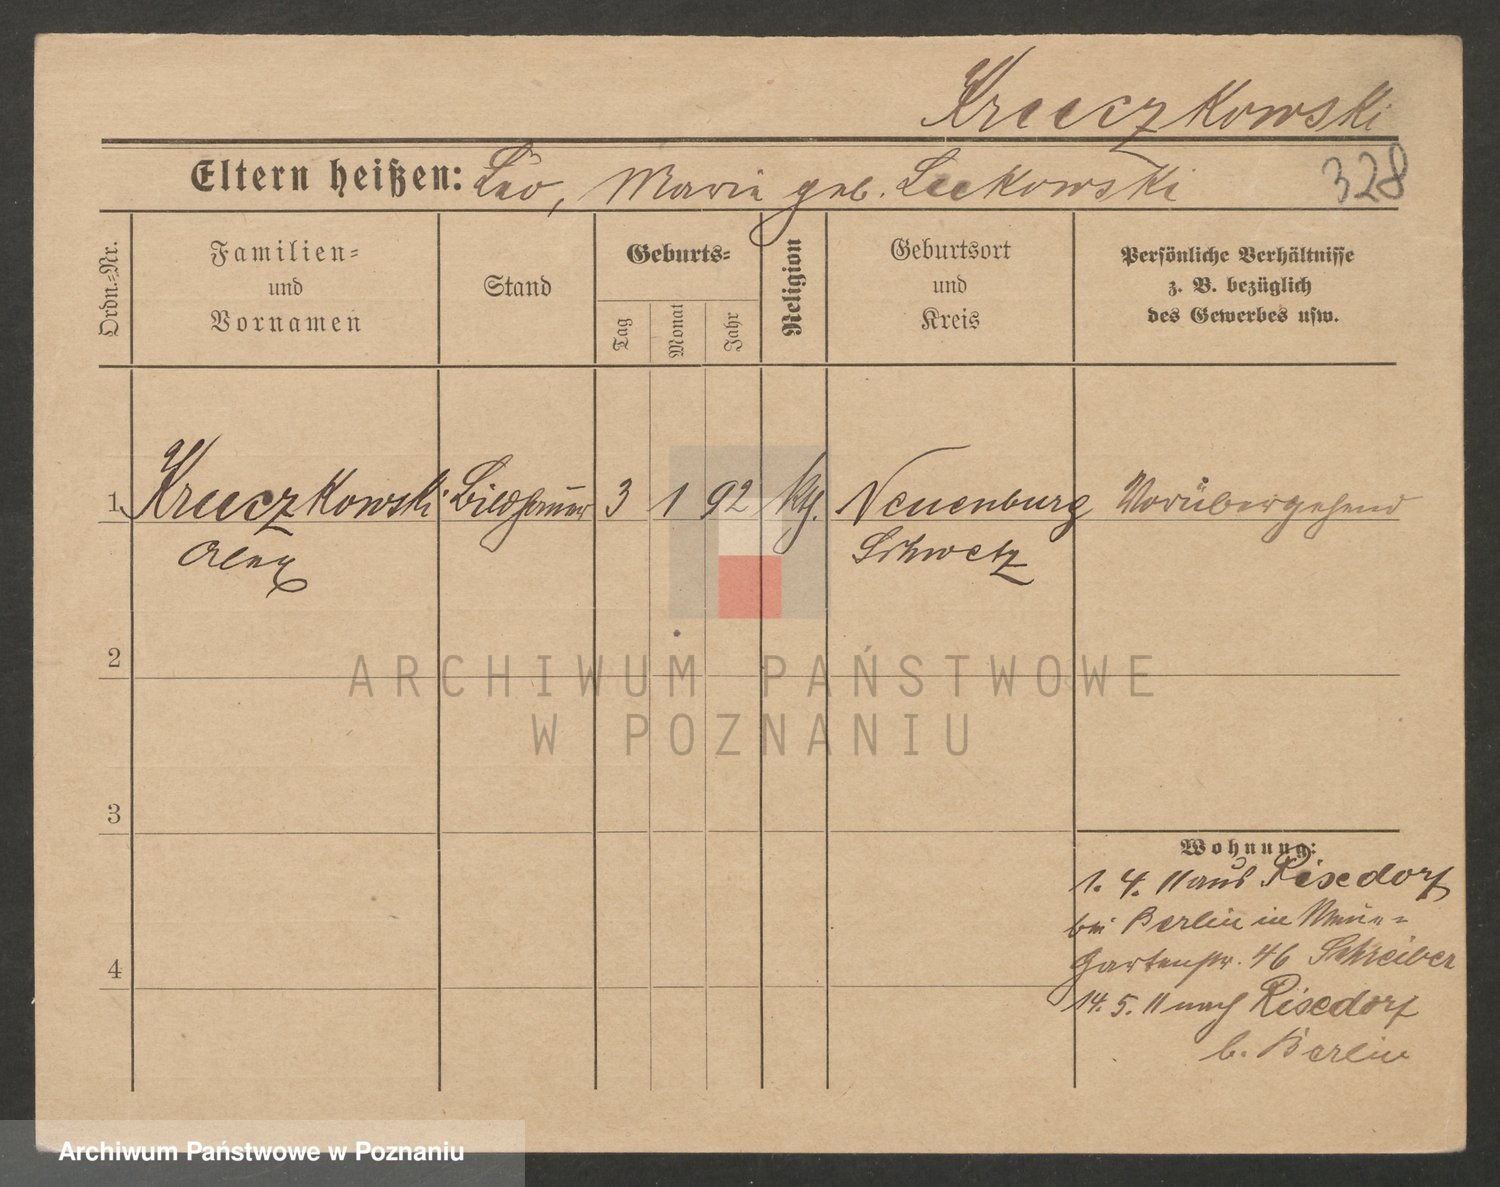 Kruczkowski
Eltern heißen: Leo, Maria geb. Lukowski 328
Ordn.=Nr.
Familien=
und
Vornamen
Stand
Geburts=
Tag
Monat
Jahr
Religion
Geburtsort
und
Kreis
Persönliche Verhältnisse
z. B. bezüglich
des Gewerbes usw.
1 Kruczkowski Bildhauer 3 1 92 kth. Neuenburg Vorübergehend
Alex Schwetz
2
ARCHIWUM PAŃSTWOWE
W POZNANIU
3
Wohnung:
1. 4. 11 aus Rixdorf
bei Berlin in
Gartenstr. 46 Schreiber
4
14. 5. 11 nach Rixdorf
b. Berlin
Archiwum Państwowe w Poznaniu